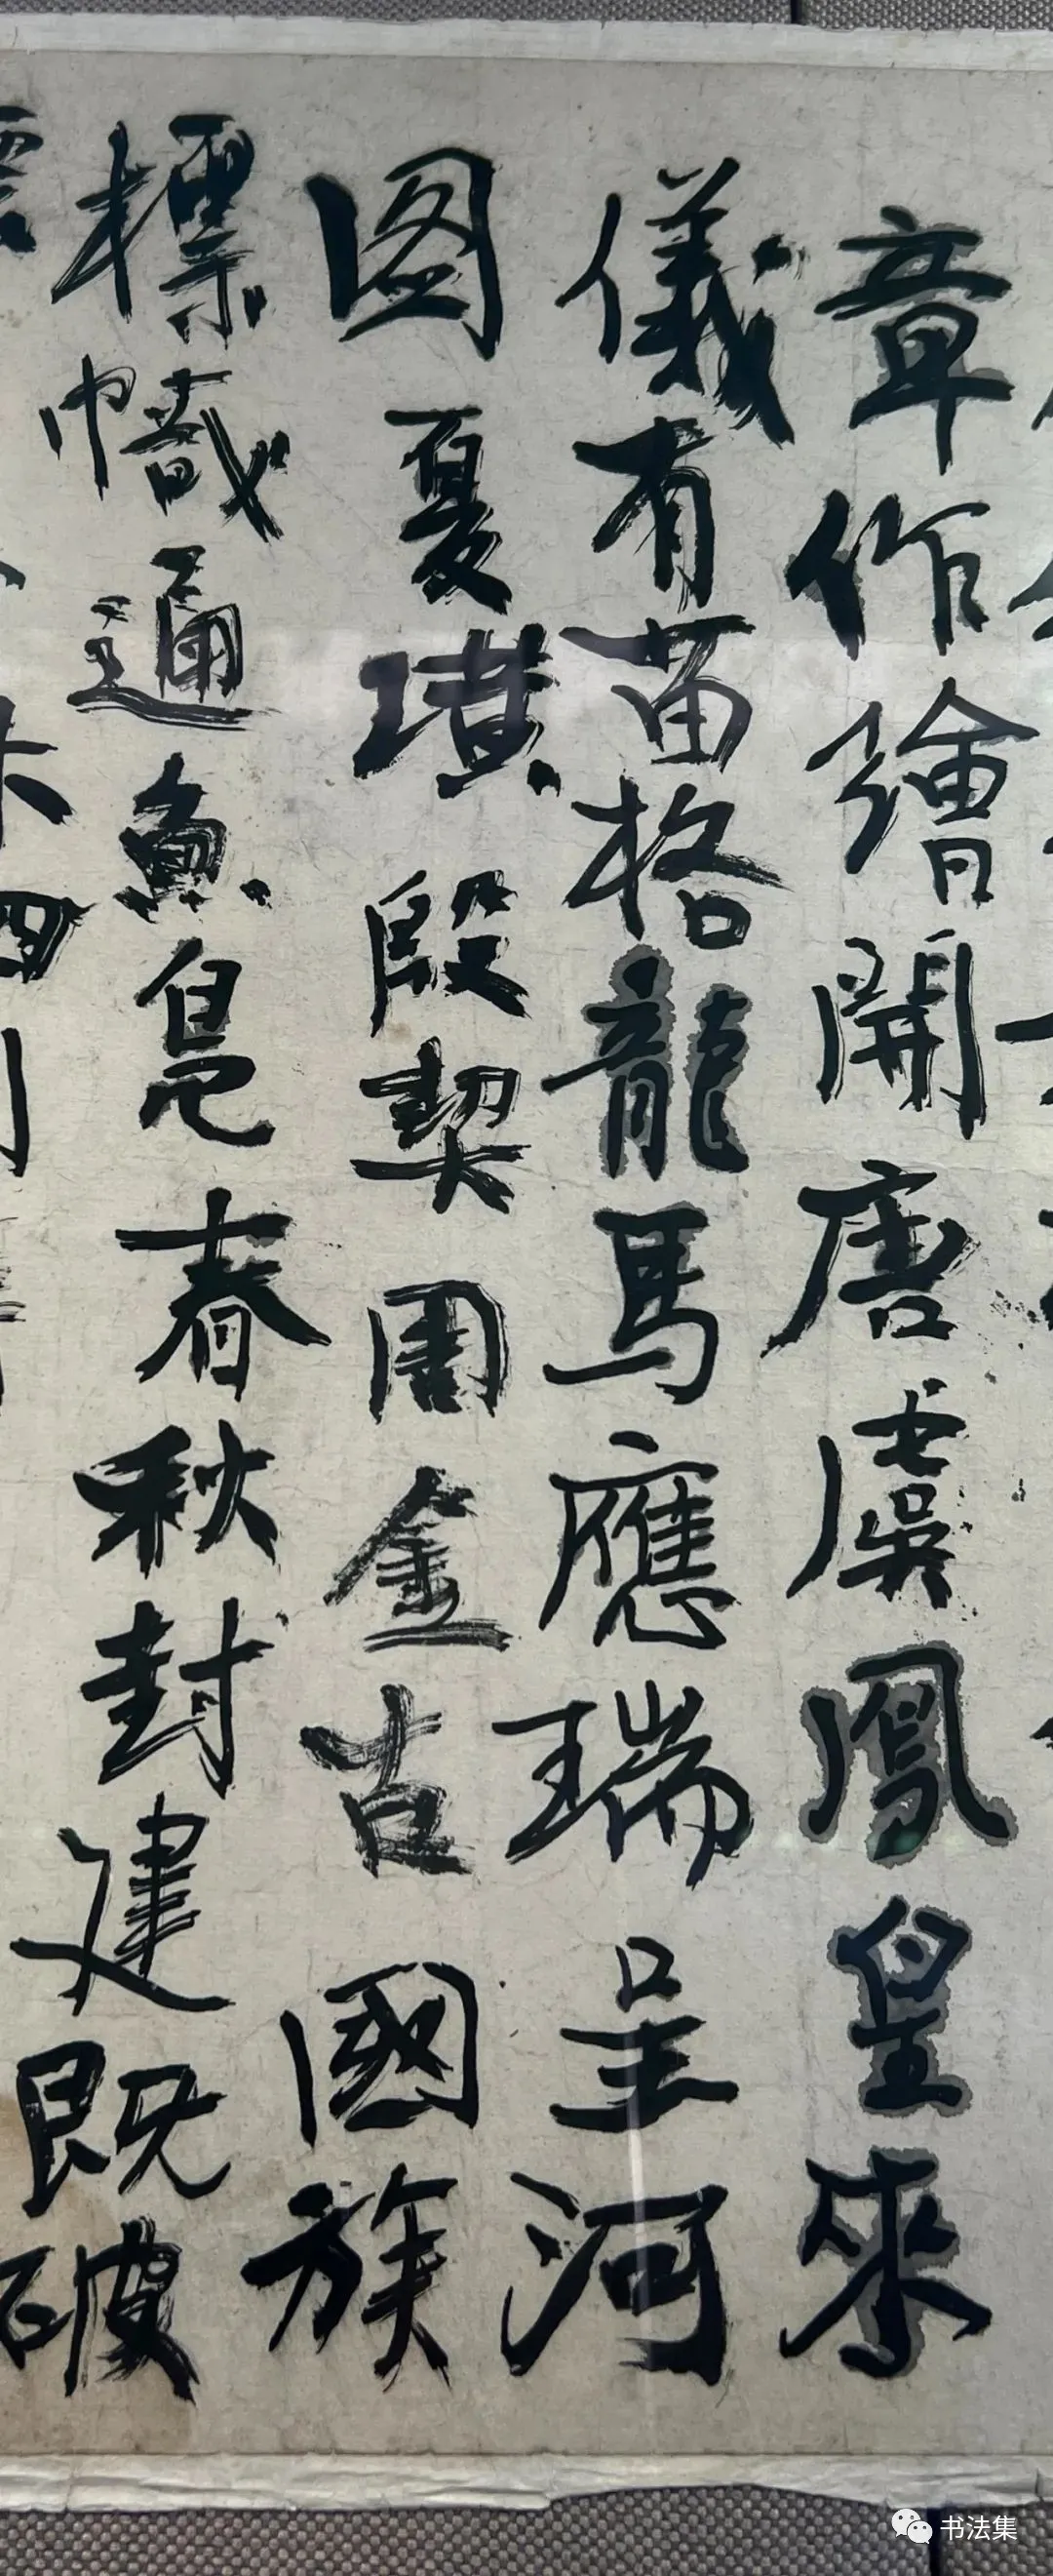 章作繪開唐虞鳳皇來
儀有苗格龍馬應瑞呈河
图夏璜殷契周金古國族
標幟通魚鳧春秋封建既破
书法集